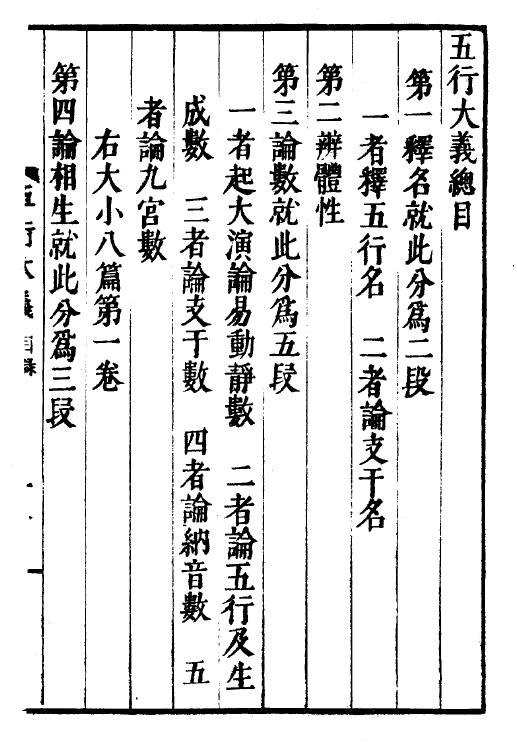 五行大義總目
第一釋名就此分爲二段
一者釋五行名　二者論支干名
第二辨體性
第三論數就此分爲五段
一者起大演論易動靜數　二者論五行及生
成數　三者論支干數　四者論納音數　五
者論九宮數
右大小八篇第一卷
第四論相生就此分爲三段
五行大義 目錄 一